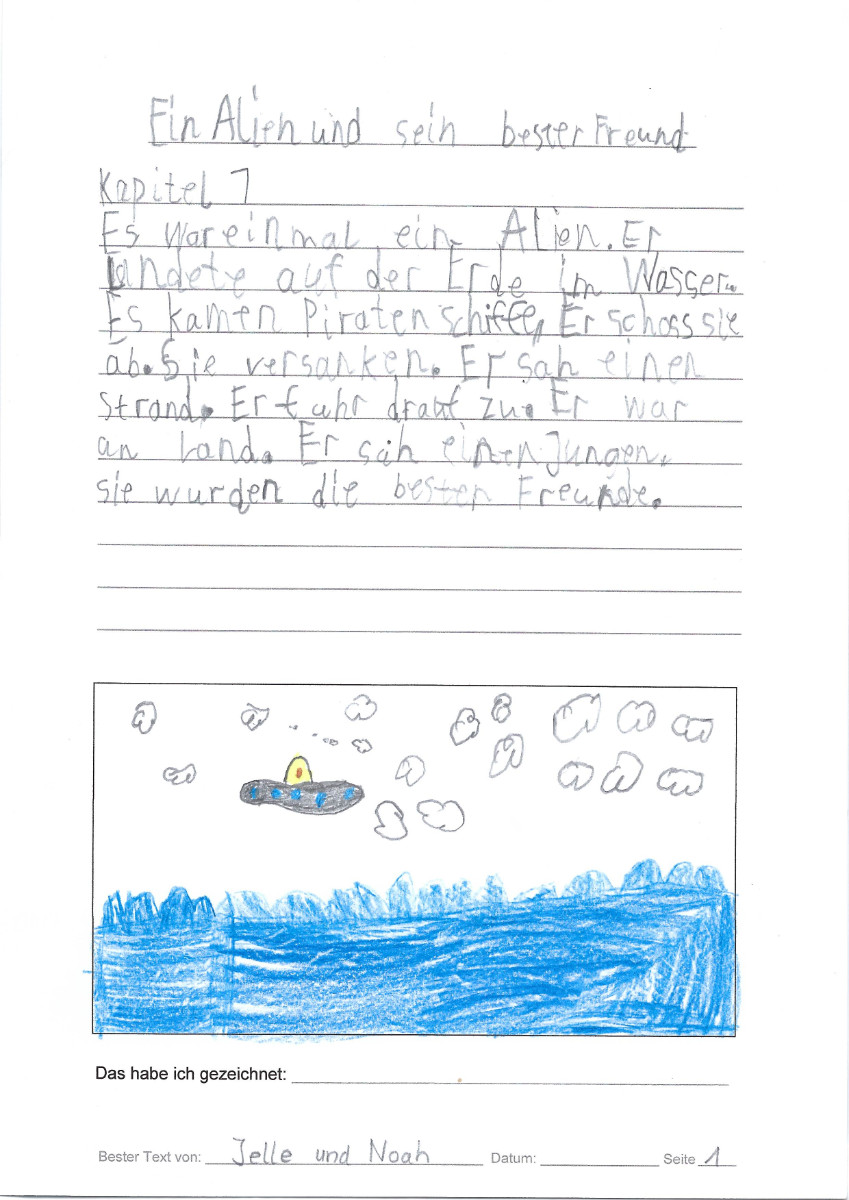 Ein Alien und sein bester Freund
Kapitel 1
Es war einmal ein Alien. Er
landete auf der Erde im Wasser.
Es kamen Piratenschiffe, Er schoss sie
ab. Sie versanken. Er sah einen
Strand. Er fuhr drauf zu. Er war
an Land. Er sah einen Jungen.
sie wurden die besten Freunde.
Das habe ich gezeichnet:
Bester Text von: Jelle und Noah Datum: Seite 1